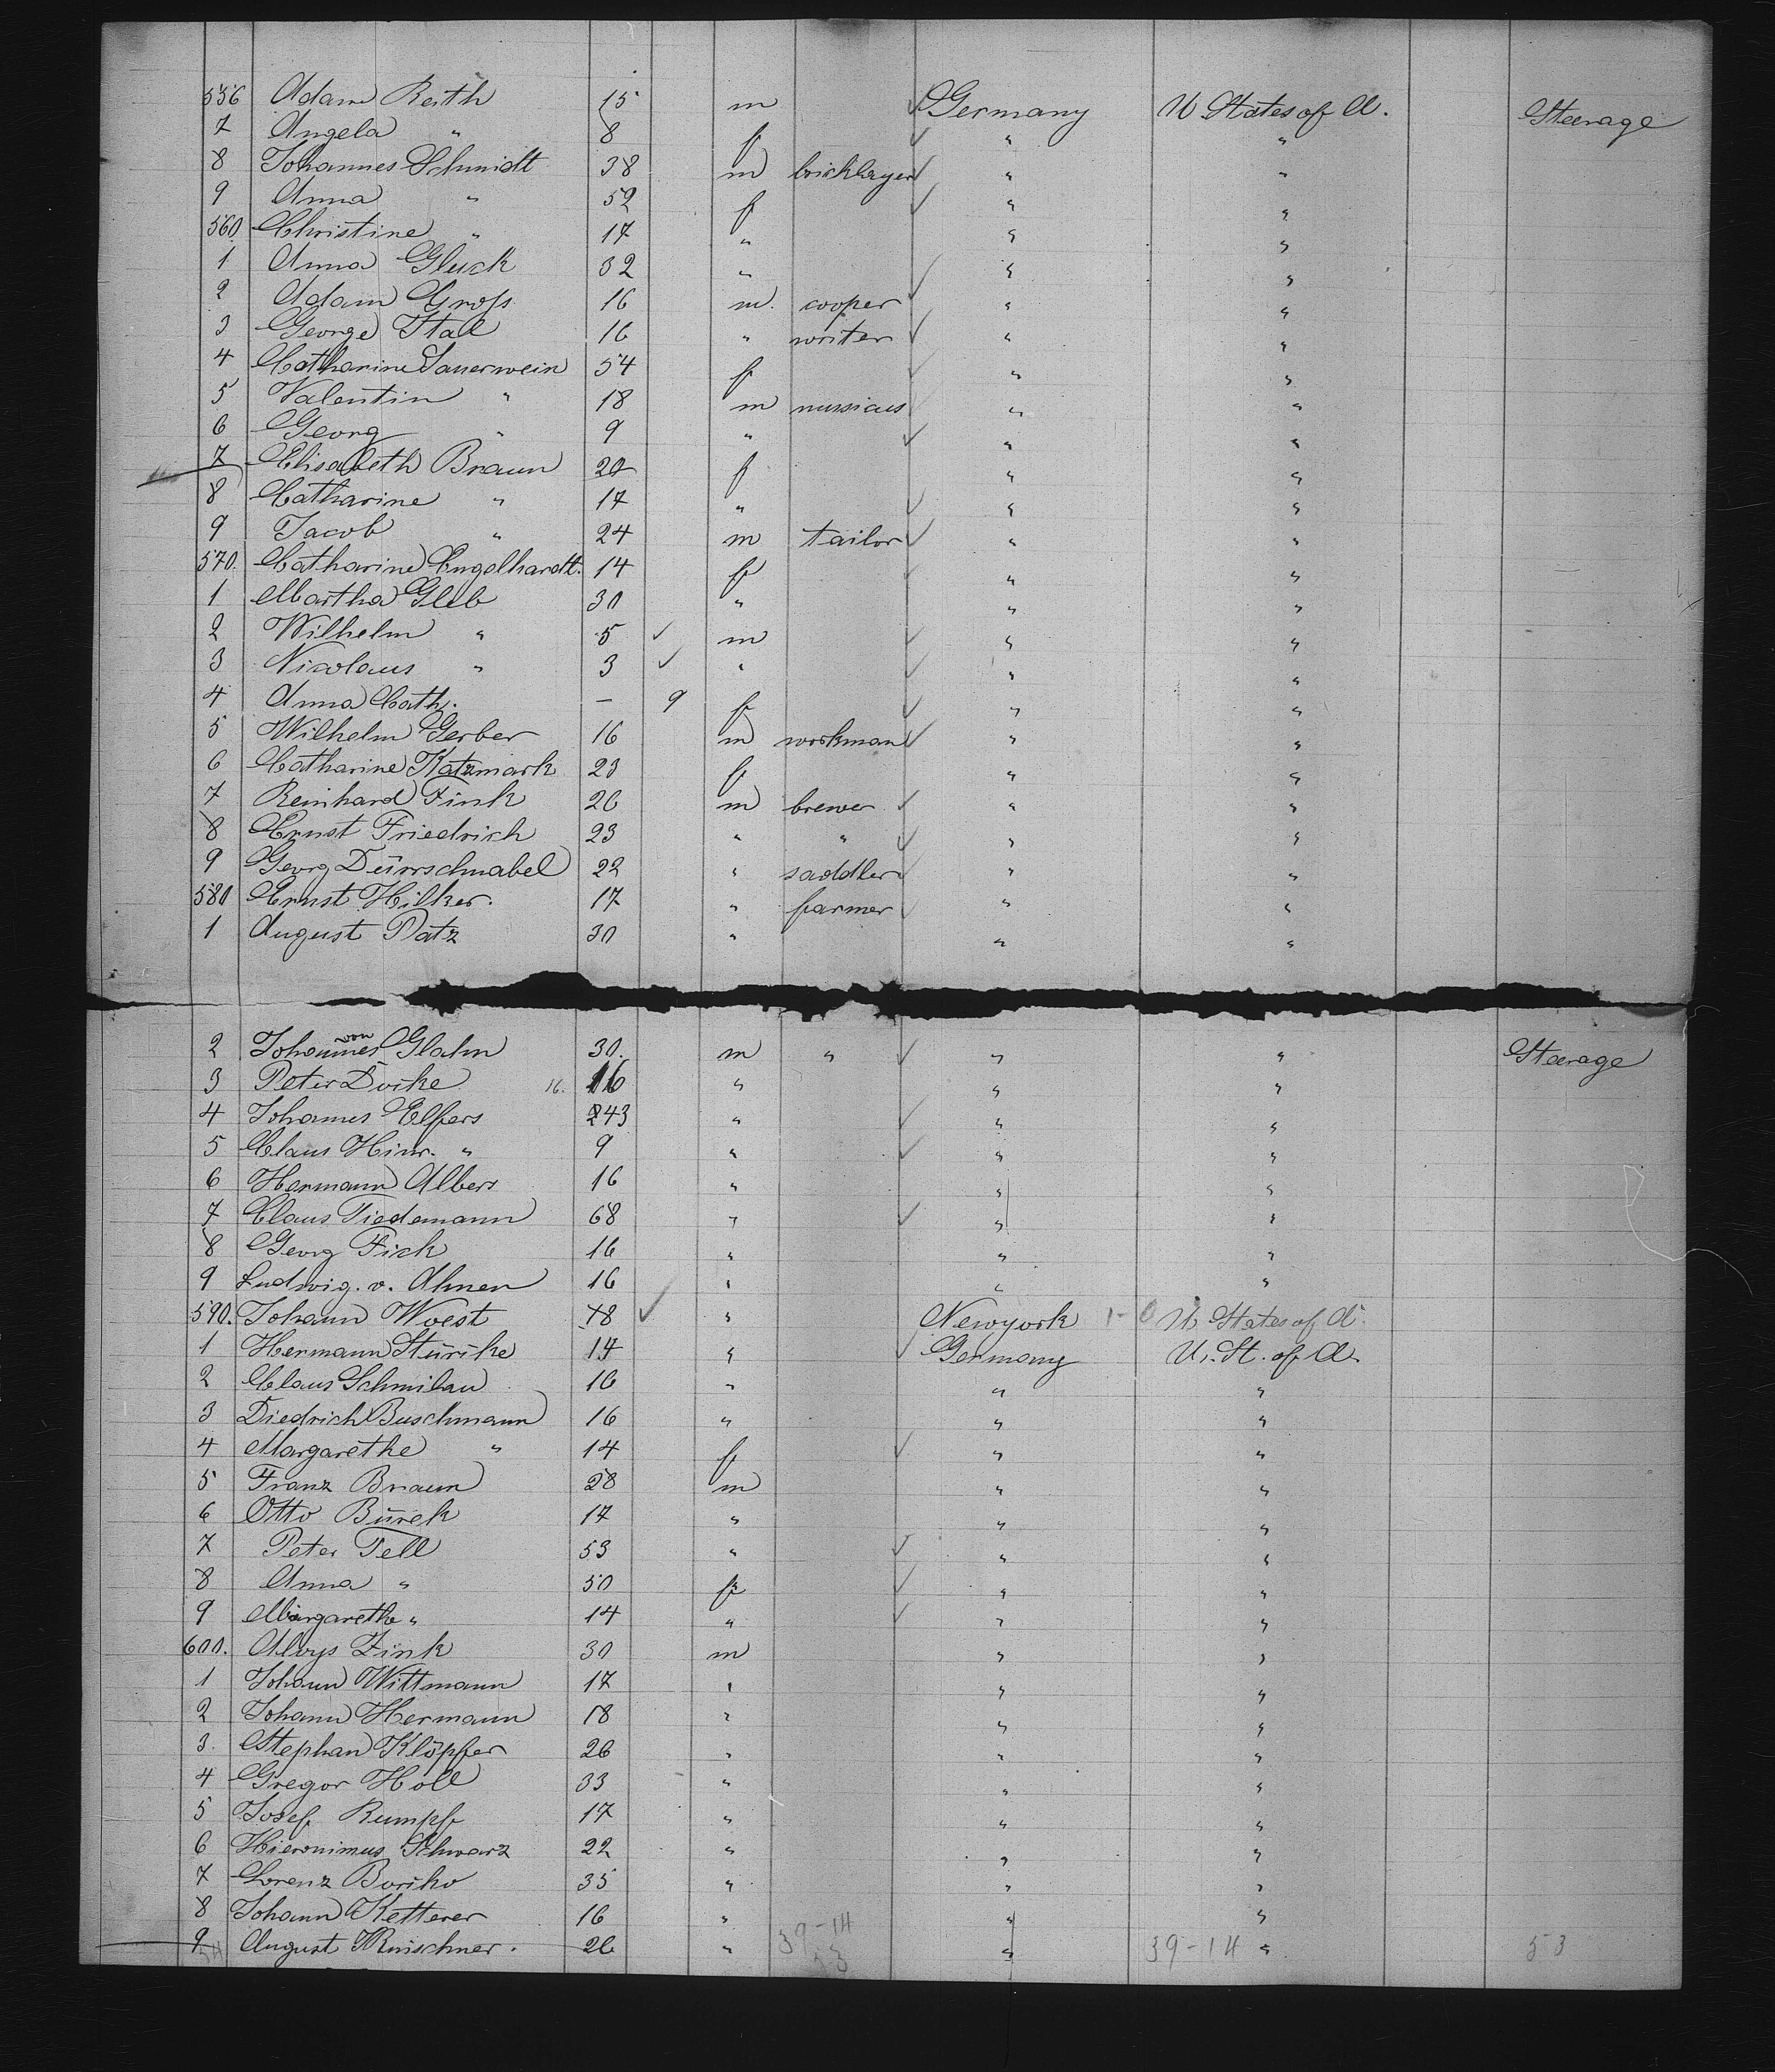 556 Adam Reith 15 m Germany U States of A. Steerage
7 Angela " 8 f " "
8 Johannes Schmidt 38 m bricklayer " "
9 Anna " 52 f " "
560 Christine " 17 " " "
1 Anna Gluck 32 " " "
2 Adam Groß 16 m. cooper " "
3 George Stal 16 " writer " "
4 Catharine Sauerwein 54 f " "
5 Valentin " 18 m musicus " "
6 Georg " 9 " " "
7 Elisabeth Braun 20 f " "
8 Catharine " 17 " " "
9 Jacob " 24 m tailor " "
570. Catharine Engelhardt. 14 f " "
1 Martha Gleb 30 " " "
2 Wilhelm " 5 m " "
3 Nicolaus " 3 " " "
4 Anna Cath. — 9 f " "
5 Wilhelm Gerber 16 m workman " "
6 Catharine Katzmark 23 f " "
7 Reinhard Fink 26 m brewer " "
8 Ernst Friedrich 23 " " " "
9 Georg Dürrschnabel 22 " saddler " "
580 Ernst Hilker. 17 " farmer " "
1 August Datz 30 " " "
2 Johannes von Glahn 30. m " " " Steerage
3 Peter Dorke 16. 16 " " "
4 Johannes Elfers 43 " " "
5 Claus Hinr. " 9 " " "
6 Hermann Albers 16 " " "
7 Claus Tiedemann 68 " " "
8 Georg Fick 16 " " "
9 Ludwig. v. Ahnen 16 " " "
590. Johann Woest 48 " Newyork 1-0 U States of A.
1 Hermann Stürike 14 " Germany U. St. of A.
2 Claus Schmilau 16 " " "
3 Diedrich Buschmann 16 " " "
4 Margarethe " 14 f " "
5 Franz Braun 28 m " "
6 Otto Bürck 17 " " "
7 Peter Tell 53 " " "
8 Anna " 50 f " "
9 Margarethe " 14 " " "
600. Aloys Zink 30 m " "
1 Johann Wittmann 17 " " "
2 Johann Hermann 18 " " "
3. Stephan Klöpfer 26 " " "
4 Gregor Holl 33 " " "
5 Josef Rumpf 17 " " "
6 Hieronimus Schwarz 22 " " "
7 Lorenz Boriko 35 " " "
8 Johann Ketterer 16 " " "
9 August 26 " 39-14 " 39-14 " 53